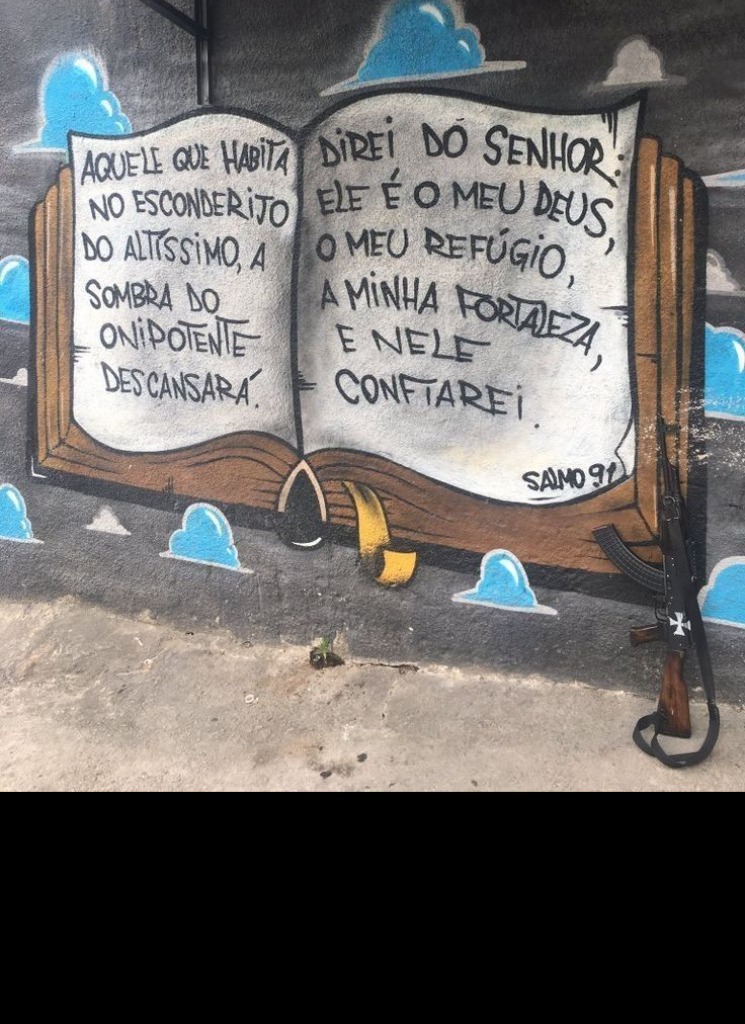 AQUELE QUE HABITA
NO ESCONDERIJO
DO ALTÍSSIMO, A
SOMBRA DO
ONIPOTENTE
DESCANSARÁ.
DIREI DO SENHOR:
ELE É O MEU DEUS,
O MEU REFÚGIO,
A MINHA FORTALEZA,
E NELE
CONFIAREI.
SALMO 91